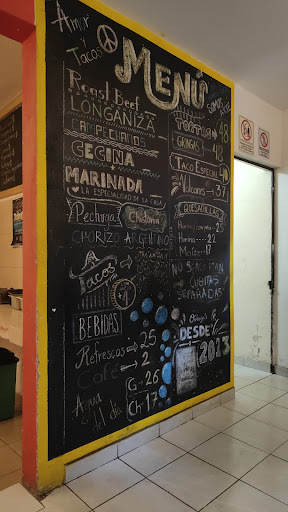 Amor
Tacos
MENÚ
Roast Beef
LONGANIZA
CAMPECHANOS
CECINA
+
MARINADA
LA ESPECIALIDAD DE LA CASA
Pechuga Chistorra
CHORIZO ARGENTINO
Tacos
BEBIDAS
Refrescos 25
Café 2
Agua del día G - 26
Ch - 17
48
GRINGAS 48
TACO ESPECIAL 48
Volcanes 37
QUESADILLAS
Harina 22
Maíz 17
NO SE HACEN
CUENTAS
SEPARADAS
DESDE
2013